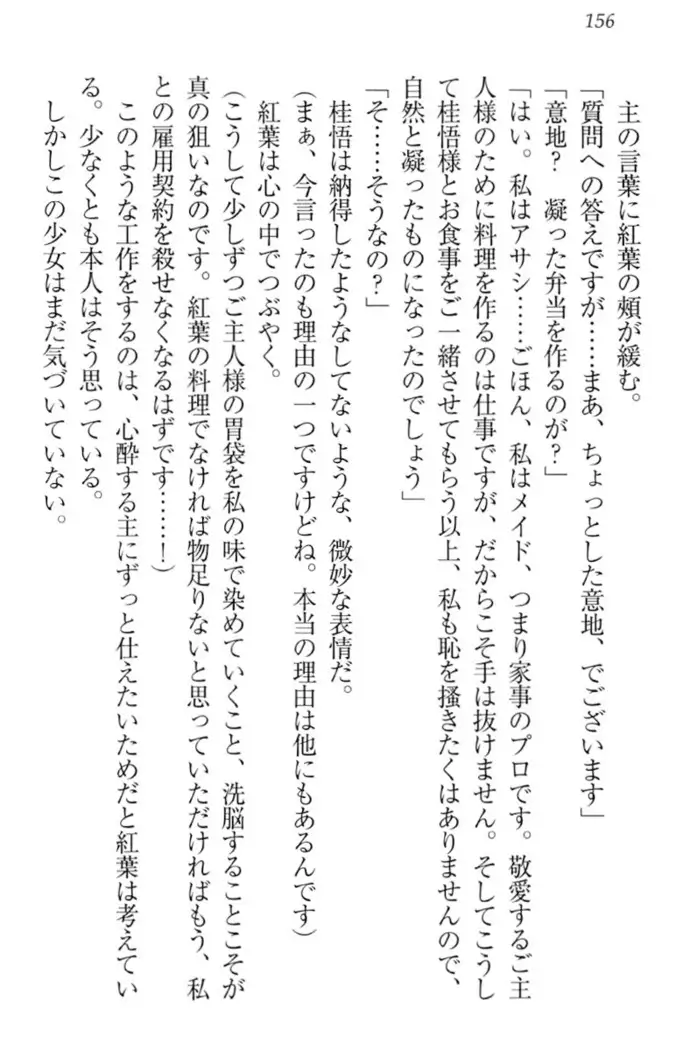 156
　主の言葉に紅葉の頰が緩む。
「質問への答えですが……まあ、ちょっとした意地、でございます」
「意地？　凝った弁当を作るのが？」
「はい。私はアサシ……ごほん、私はメイド、つまり家事のプロです。敬愛するご主
人様のために料理を作るのは仕事ですが、だからこそ手は抜けません。そしてこうし
て桂悟様とお食事をご一緒させてもらう以上、私も恥を搔きたくはありませんので、
自然と凝ったものになったのでしょう」
「そ……そうなの？」
　桂悟は納得したようなしてないような、微妙な表情だ。
（まぁ、今言ったのも理由の一つですけどね。本当の理由は他にもあるんです）
　紅葉は心の中でつぶやく。
（こうして少しずつご主人様の胃袋を私の味で染めていくこと、洗脳することこそが
真の狙いなのです。紅葉の料理でなければ物足りないと思っていただければもう、私
との雇用契約を殺せなくなるはずです……！）
　このような工作をするのは、心酔する主にずっと仕えたいためだと紅葉は考えてい
る。少なくとも本人はそう思っている。
　しかしこの少女はまだ気づいていない。